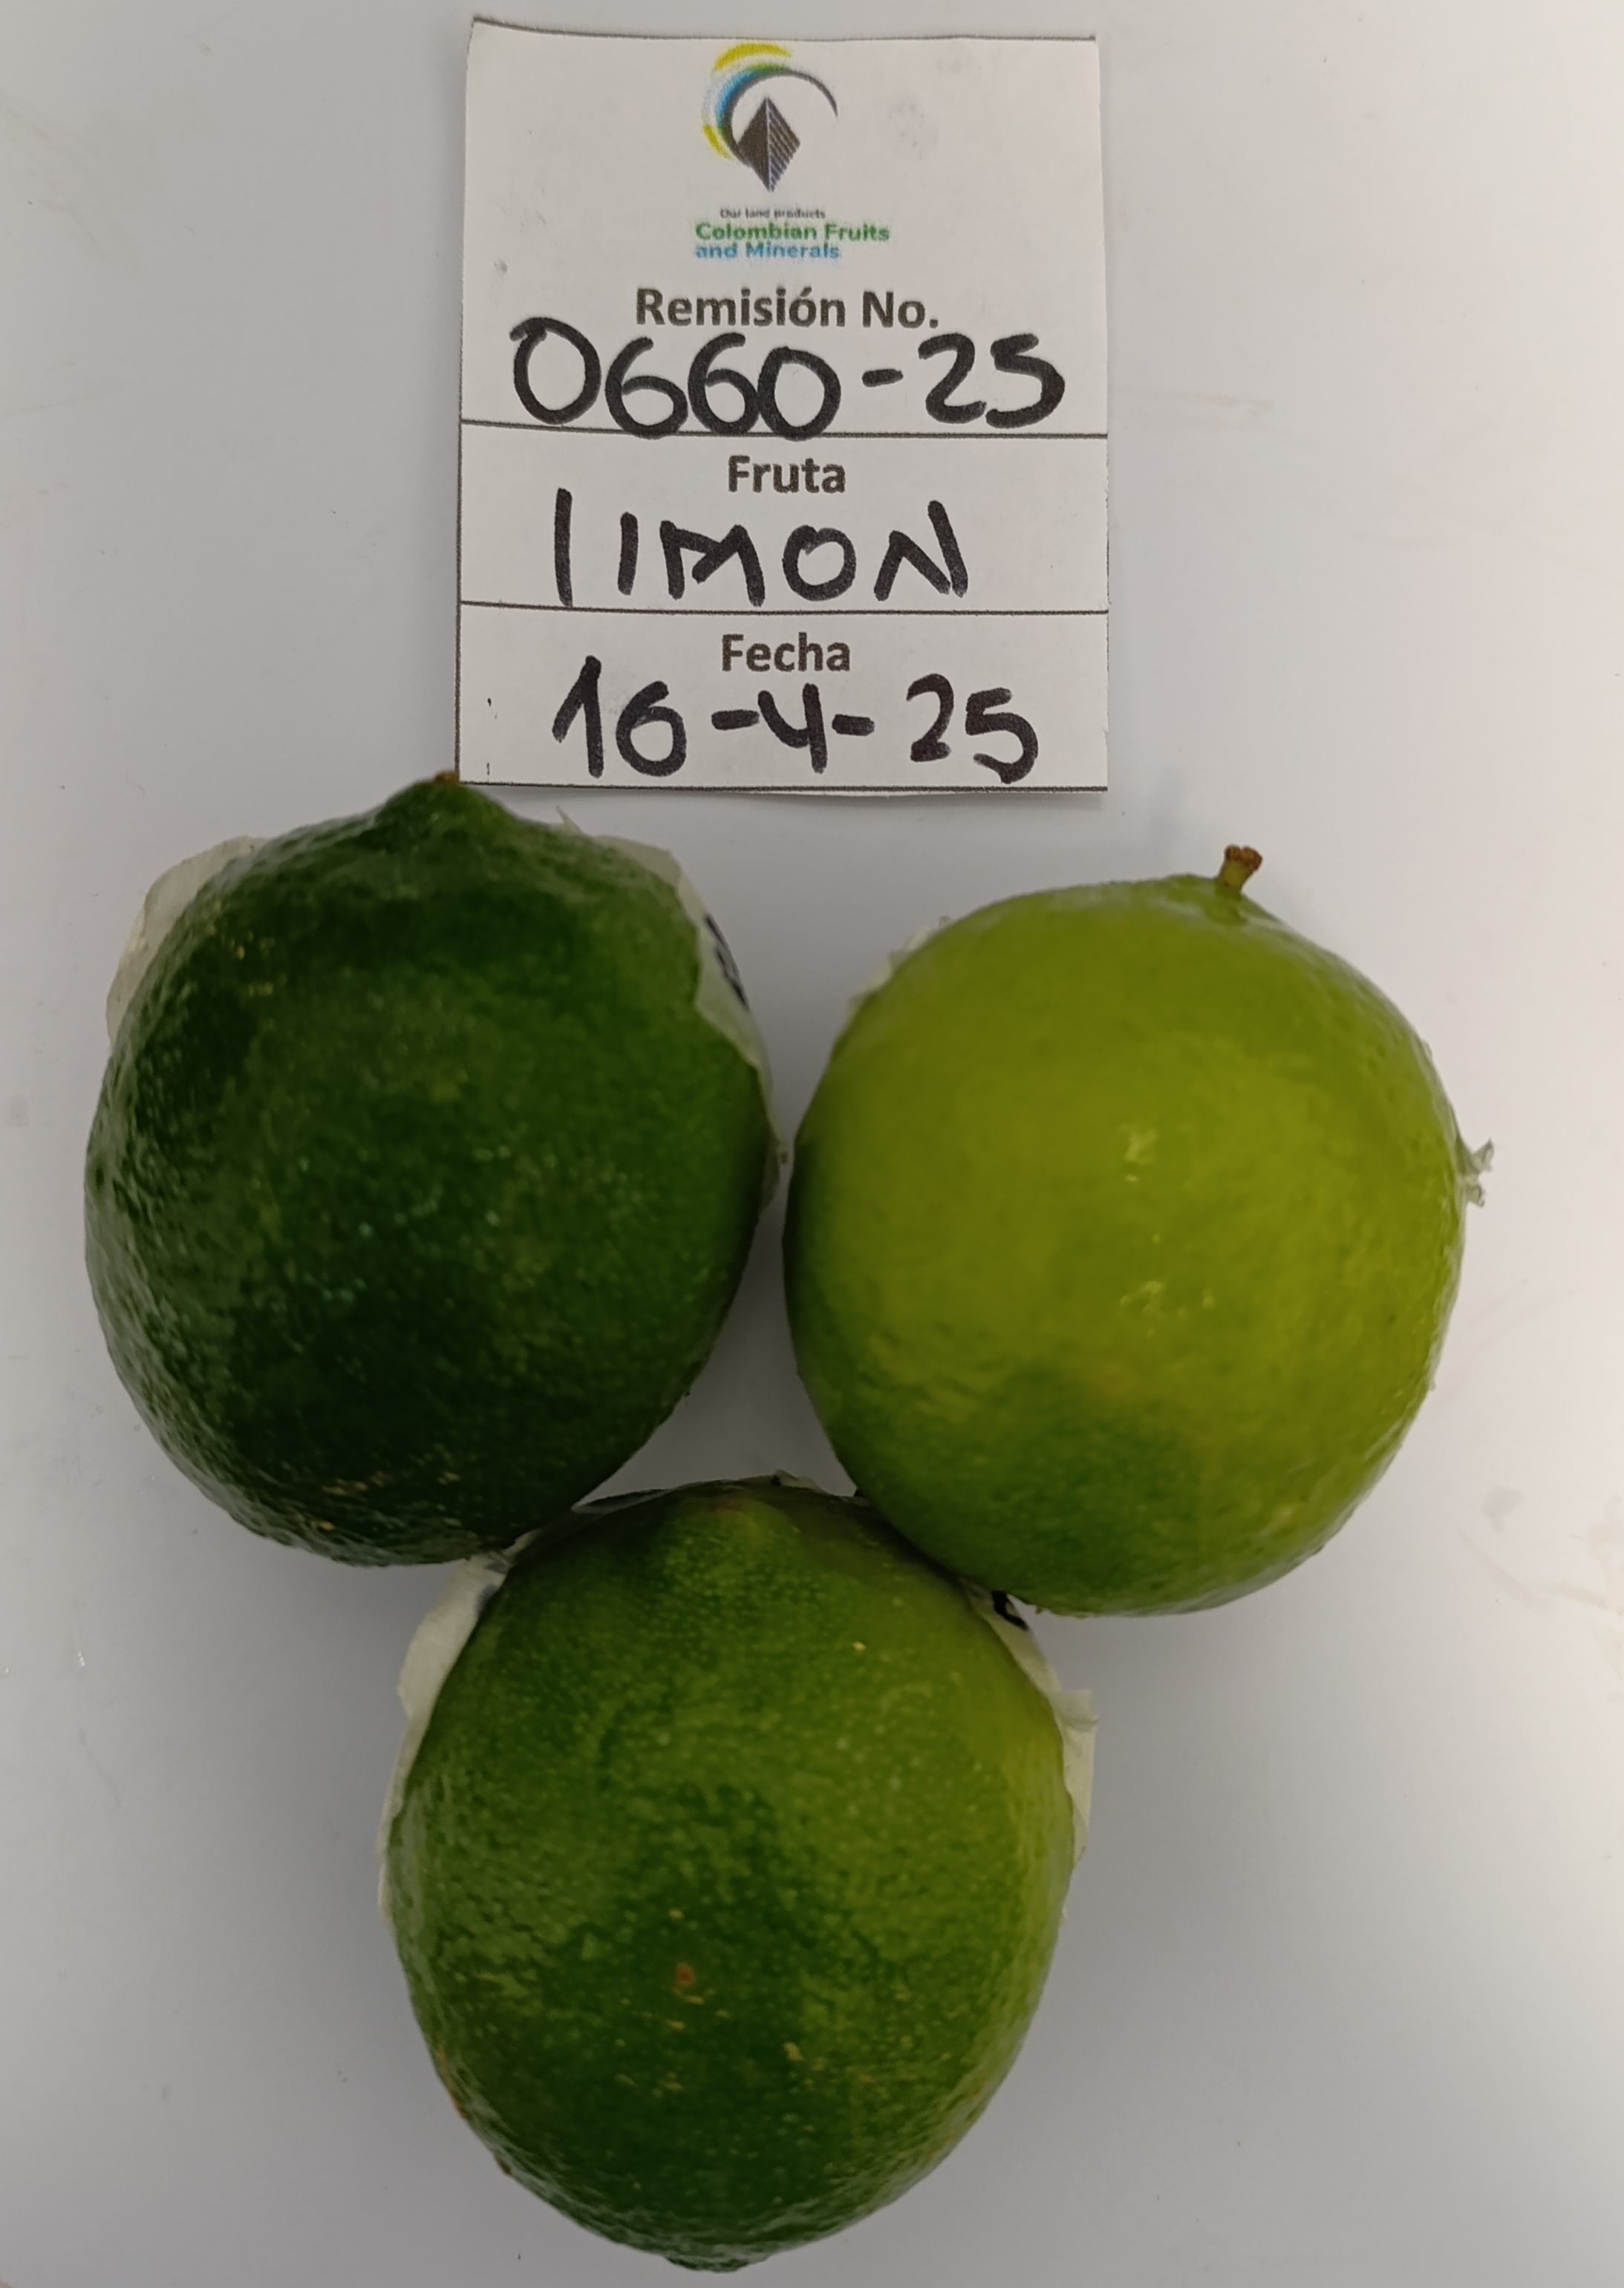 Our land products
Colombian Fruits
and Minerals
Remisión No.
0660-25
Fruta
lIMON
Fecha
16-4-25